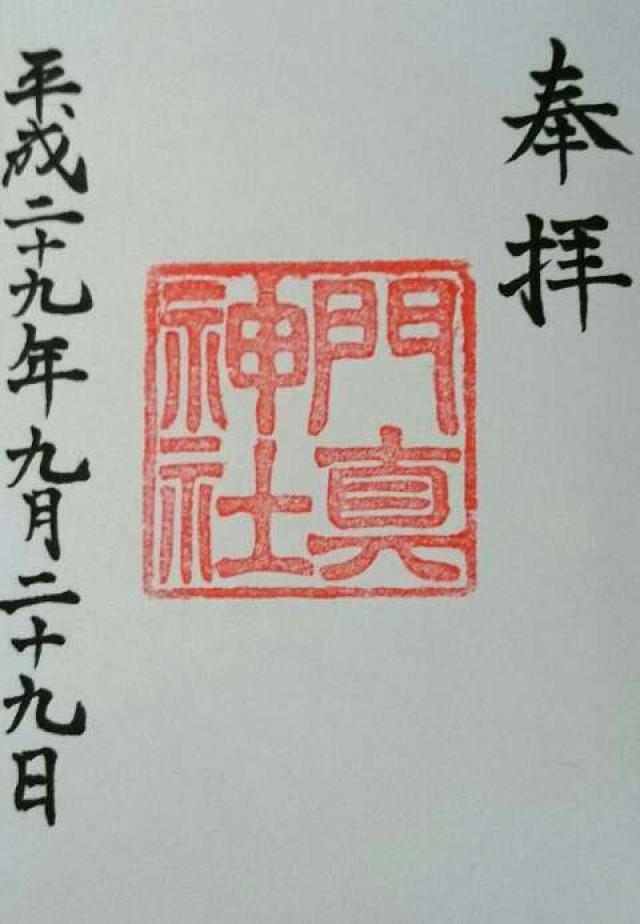 奉拝
門真
神社
平成二十九年九月二十九日